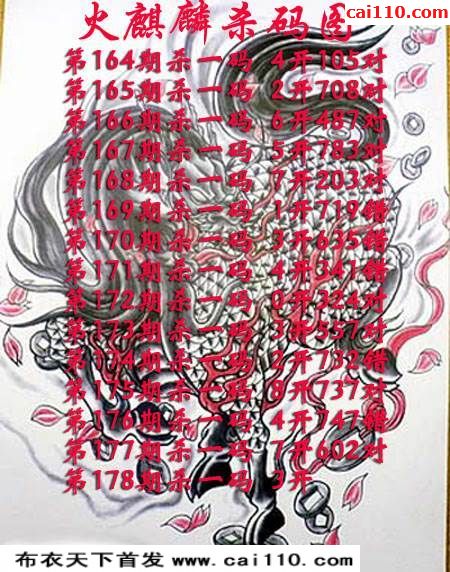 cai110.com
火麒麟杀码图
第164期杀一码 4开105对
第165期杀一码 2开708对
第166期杀一码 6开487对
第167期杀一码 5开783对
第168期杀一码 7开203对
第169期杀一码 1开719错
第170期杀一码 3开635错
第171期杀一码 4开341错
第172期杀一码 0开324对
第173期杀一码 3开557对
第174期杀一码 2开732错
第175期杀一码 8开737对
第176期杀一码 4开747错
第177期杀一码 7开602对
第178期杀一码 3开
布衣天下首发 www.cai110.com